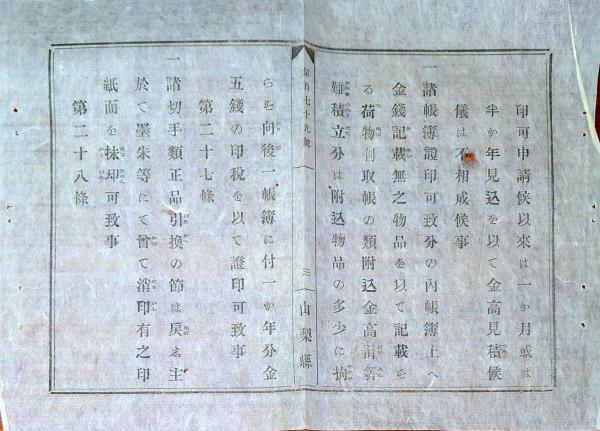 印可申請候以來は一か月或は
半か年見込を以て金高見積候
儀は不相成候事
一諸帳簿證印可致分の內帳簿上へ
金錢記載無之物品を以て記載せ
る荷物判取帳の類附込金高計筭
難積立分は附込物品の多少に拘
第百七十九號 三 山梨縣
らず向後一帳簿に付一か年分金
五錢の印稅を以て證印可致事
第二十七條
一諸切手類正品引換の節は戻ゐ主
於て墨朱等にて曾て消印有之印
紙面を抹却可致事
第二十八條